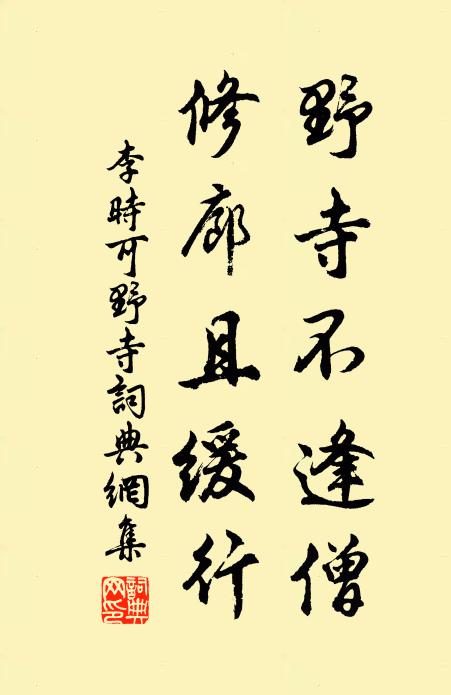 野寺不逢僧
修廊且緩行
李時可野寺詞典網集
詞典網印